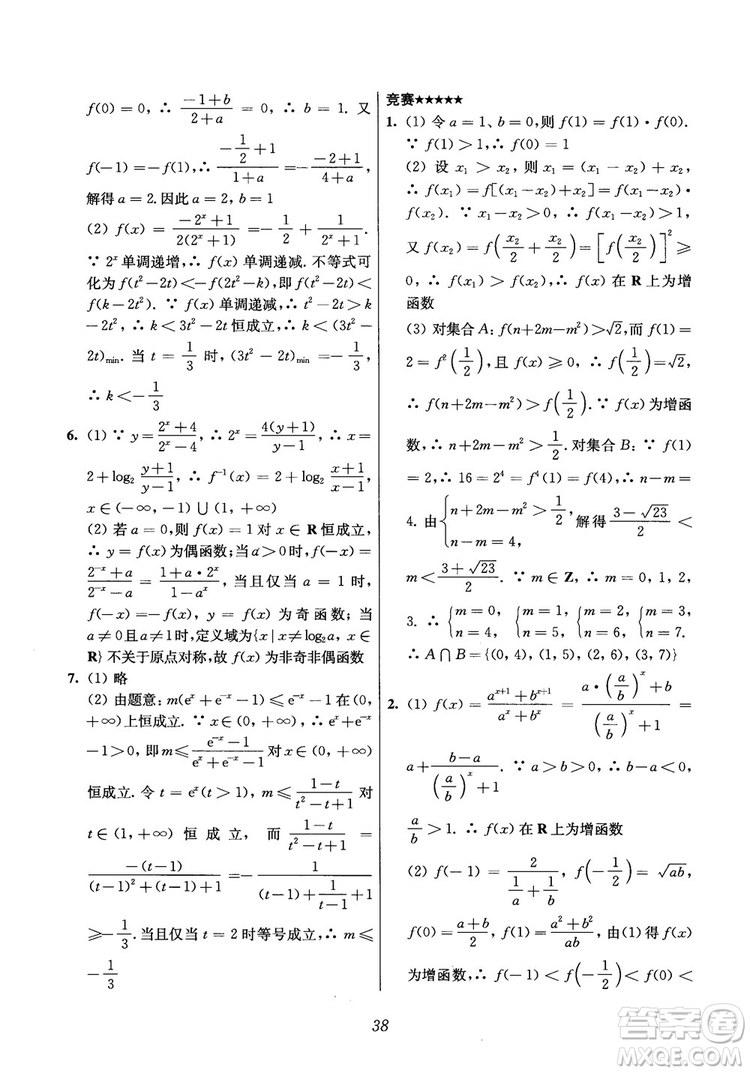 f(0)=0,∴ (-1+b)/(2+a) = 0,∴ b=1. 又
f(-1)=-f(1),∴ (-1/2+1)/(1+a) = -(-2+1)/(4+a),
解得 a=2. 因此 a=2, b=1
(2) f(x)= (-2^x+1)/(2(2^x+1)) = -1/2 + 1/(2^x+1)
∵ 2^x 单调递增,∴ f(x) 单调递减. 不等式可
化为 f(t²-2t)<-f(k-2t²),即 f(t²-2t)<
f(k-2t²). ∵ f(x) 单调递减,∴ t²-2t>k
-2t²,∴ k<3t²-2t 恒成立,∴ k<(3t²-
2t)min. 当 t = 1/3 时,(3t²-2t)min = -1/3
∴ k<-1/3
6. (1) ∵ y= (2^x+4)/(2^x-4),∴ 2^x = 4(y+1)/(y-1) ∴ x=
2+log₂ (y+1)/(y-1),∴ f⁻¹(x) = 2+log₂ (x+1)/(x-1),
x∈(-∞,-1)∪(1,+∞)
(2) 若 a=0,则 f(x)=1 对 x∈R 恒成立,
∴ y=f(x)为偶函数;当 a>0 时,f(-x)=
(2^-x+a)/(2^-x-a) = (1+a·2^x)/(1-a^x),当且仅当 a = 1 时,
f(-x)=-f(x), y = f(x) 为奇函数;当
a≠0 且 a≠1 时,定义域为{x|x≠log₂a, x∈
R} 不关于原点对称,故 f(x)为非奇非偶函数
7. (1) 略
(2) 由题意:m(e^x+e^-x-1)≤e^-x-1 在(0,
+∞)上恒成立. ∵ x∈(0,+∞),∴ e^x+e^-x
-1>0,即 m≤ (e^-x-1)/(e^x+e^-x-1) 对 x∈(0,+∞)
恒成立. 令 t=e^x(t>1),m≤ (1-t)/(t²-t+1) 对
t∈(1,+∞) 恒成立,而 (1-t)/(t²-t+1) =
-(t-1)/((t-1)²+(t-1)+1) = - 1/(t-1+1/(t-1)+1)
≥-1/3. 当且仅当 t=2 时等号成立,∴ m≤
-1/3
竞赛★★★★★
1. (1) 令 a=1、b=0,则 f(1)=f(1)·f(0).
∵ f(1)>1,∴ f(0)=1
(2) 设 x₁>x₂,则 x₁=(x₁-x₂)+x₂,
∴ f(x₁)=f[(x₁-x₂)+x₂]=f(x₁-x₂)·
f(x₂). ∵ x₁-x₂>0,∴ f(x₁-x₂)>1,
又 f(x₂) = f(x₂/2+x₂/2) = [f(x₂/2)]² ≥
0,∴ f(x₁)>f(x₂),∴ f(x) 在 R 上为增
函数
(3) 对集合 A:f(n+2m-m²)>√2,而 f(1)=
2=f²(1/2),且 f(x)≥0,∴ f(1/2)=√2,
∴ f(n+2m-m²)>f(1/2). ∵ f(x)为增函
数,∴ n+2m-m²>1/2. 对集合 B:∵ f(1)
=2,∴ 16=2⁴=f⁴(1)=f(4),∴ n-m=
4. 由 {n+2m-m²>1/2, n-m=4, 解得 (3-√23)/2 <
m< (3+√23)/2. ∵ m∈Z,∴ m=0, 1, 2,
3. ∴ {m=0, n=4, {m=1, n=5, {m=2, n=6, {m=3, n=7,
∴ A∩B={(0,4),(1,5),(2,6),(3,7)}
2. (1) f(x)= (a^(x+1)+b^(x+1))/(a^x+b^x) = (a·(a/b)^x+b)/((a/b)^x+1) =
a+ (b-a)/((a/b)^x+1). ∵ a>b>0,∴ b-a<0,
a/b>1. ∴ f(x)在 R 上为增函数
(2) f(-1) = 2/(1/a+1/b), f(-1/2) = √ab,
f(0)= (a+b)/2, f(1)= (a²+b²)/ab,由(1)得 f(x)
为增函数,∴ f(-1)<f(-1/2)<f(0)<
38
答案卷
MXQE.COM